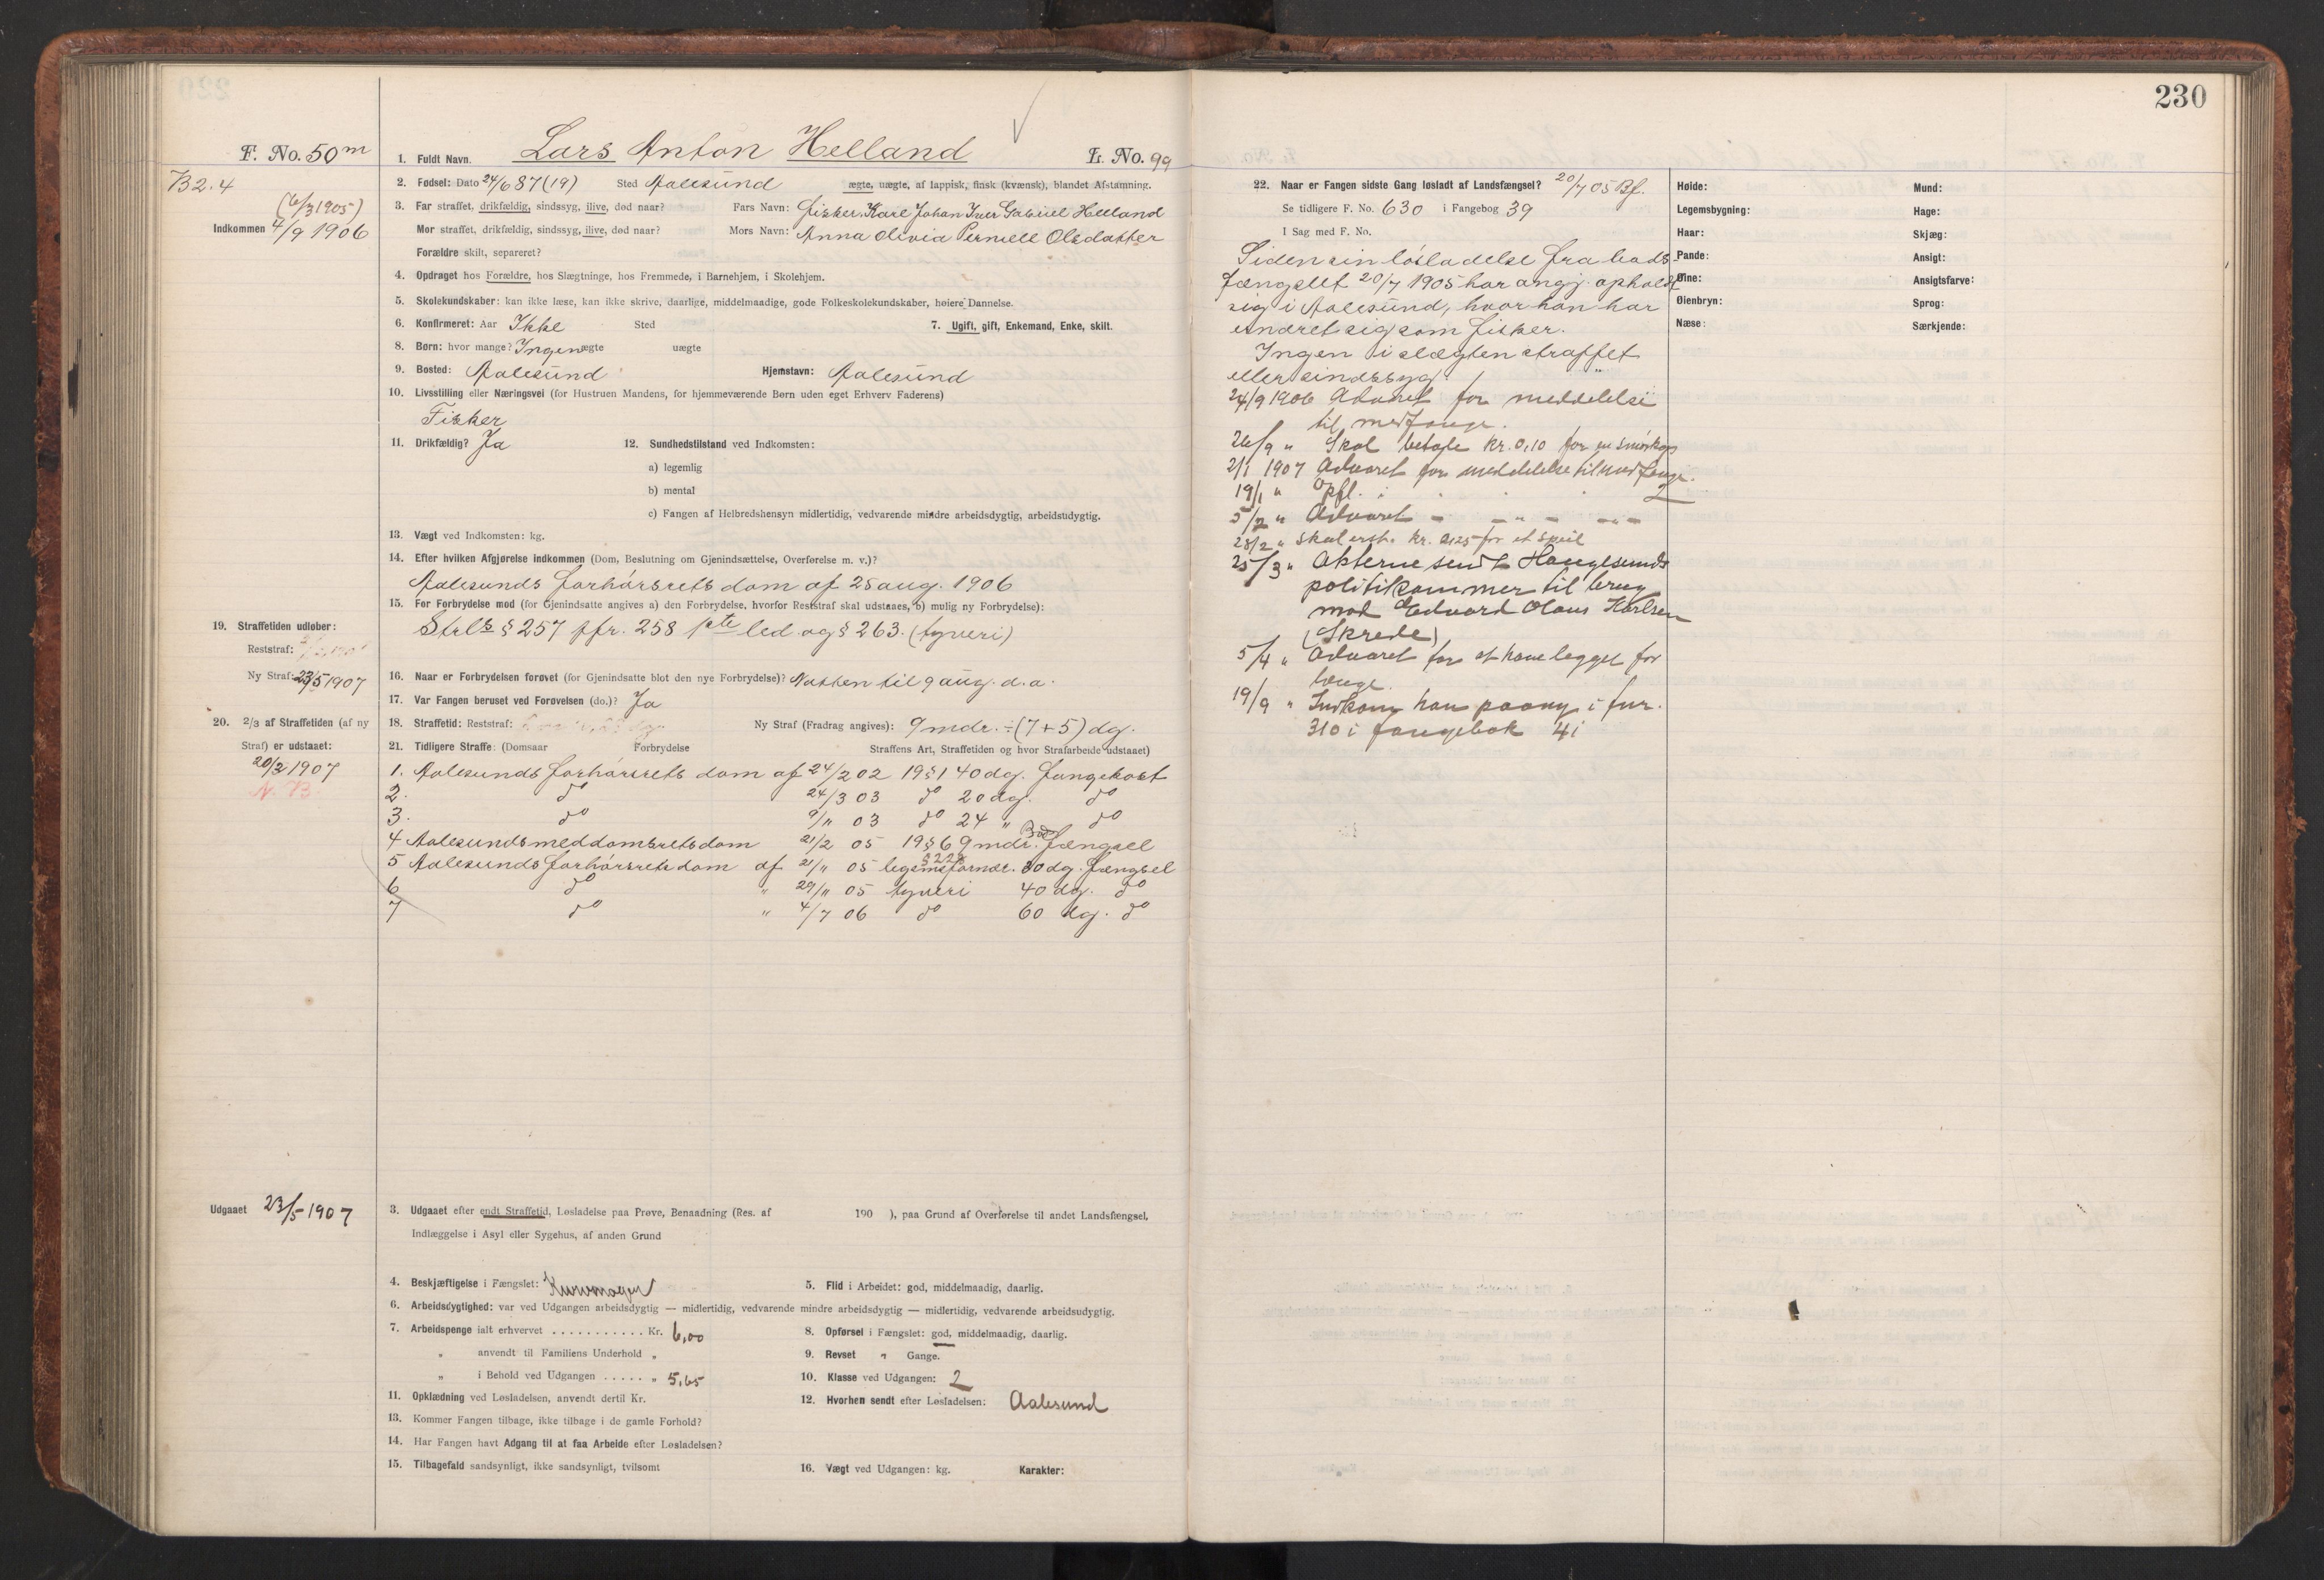 230
F. No. 50 m
1. Fuldt Navn. Lars Anton Helland
L. No. 99
B 2. 4
(6/3 1905)
Indkommen 4/9 1906
2. Fødsel: Dato 24/6 87 (19) Sted Aalesund ægte, uægte, af lappisk, finsk (kvænsk), blandet Afstamning.
3. Far straffet, drikfældig, sindssyg, ilive, død naar? Fars Navn: fisker Karl Johan Iver Gabriel Helland
Mor straffet, drikfældig, sindssyg, ilive, død naar? Mors Navn: Anna Olivia Pernille Olsdatter
Forældre skilt, separeret?
4. Opdraget hos Forældre, hos Slægtninge, hos Fremmede, i Barnehjem, i Skolehjem.
5. Skolekundskaber: kan ikke læse, kan ikke skrive, daarlige, middelmaadige, gode Folkeskolekundskaber, høiere Dannelse.
6. Konfirmeret: Aar Ikke Sted
7. Ugift, gift, Enkemand, Enke, skilt.
8. Børn: hvor mange? Ingen ægte uægte
9. Bosted: Aalesund Hjemstavn: Aalesund
10. Livsstilling eller Næringsvei (for Hustruen Mandens, for hjemmeværende Børn uden eget Erhverv Faderens)
Fisker
11. Drikfældig? Ja
12. Sundhedstilstand ved Indkomsten:
a) legemlig
b) mental
c) Fangen af Helbredshensyn midlertidig, vedvarende mindre arbeidsdygtig, arbeidsudygtig.
13. Vægt ved Indkomsten: kg.
14. Efter hvilken Afgjørelse indkommen (Dom, Beslutning om Gjenindsættelse, Overførelse m. v.)?
Aalesunds forhørsrets dom af 25 aug. 1906
15. For Forbrydelse mod (for Gjenindsatte angives a) den Forbrydelse, hvorfor Reststraf skal udstaaes, b) mulig ny Forbrydelse):
Strl's § 257 jfr. 258 1ste led og § 263. (tyveri)
19. Straffetiden udløber:
Reststraf:
Ny Straf: 23/5 1907
16. Naar er Forbrydelsen forøvet (for Gjenindsatte blot den nye Forbrydelse)? Natten til 9 aug. d.a.
17. Var Fangen beruset ved Forøvelsen (do.)? Ja
20. 2/3 af Straffetiden (af ny Straf) er udstaaet:
20/2 1907
N. 73
18. Straffetid: Reststraf: Ny Straf (Fradrag angives): 9 mdr. ÷ (7+5) dg.
21. Tidligere Straffe: (Domsaar Forbrydelse Straffens Art, Straffetiden og hvor Strafarbeide udstaaet)
1. Aalesunds forhørsrets dom af 24/2 02 19 § 1 40 dg. fangekost
2. do 24/3 03 do 20 dg. do
3. do 9/11 03 do 24 " do
4 Aalesunds meddomsrets dom 21/2 05 19 § 6 9 mdr. Bods fængsel
5 Aalesunds forhørsrets dom af 21/11 05 § 228 legemsfornær. 30 dg. fængsel
6 do " 29/11 05 tyveri 40 dg. do
7 do " 4/7 06 do 60 dg. do
Udgaaet 23/5 1907
3. Udgaaet efter endt Straffetid, Løsladelse paa Prøve, Benaadning (Res. af 190 ), paa Grund af Overførelse til andet Landsfængsel,
Indlæggelse i Asyl eller Sygehus, af anden Grund
4. Beskjæftigelse i Fængslet: Kurvmager
5. Flid i Arbeidet: god, middelmaadig, daarlig.
6. Arbeidsdygtighed: var ved Udgangen arbeidsdygtig — midlertidig, vedvarende mindre arbeidsdygtig — midlertidig, vedvarende arbeidsudygtig.
7. Arbeidspenge ialt erhvervet ........... Kr. 6,00
8. Opførsel i Fængslet: god, middelmaadig, daarlig.
" anvendt til Familiens Underhold "
9. Revset " Gange.
" i Behold ved Udgangen ..... " 5,65
10. Klasse ved Udgangen: 2
11. Opklædning ved Løsladelsen, anvendt dertil Kr.
12. Hvorhen sendt efter Løsladelsen: Aalesund
13. Kommer Fangen tilbage, ikke tilbage i de gamle Forhold?
14. Har Fangen havt Adgang til at faa Arbeide efter Løsladelsen?
15. Tilbagefald sandsynligt, ikke sandsynligt, tvilsomt
16. Vægt ved Udgangen: kg. Karakter:
22. Naar er Fangen sidste Gang løsladt af Landsfængsel? 20/7 05 Bf.
Se tidligere F. No. 630 i Fangebog 39
I Sag med F. No.
Siden sin løsladelse fra bods-
fængslet 20/7 1905 har angj. opholdt
sig i Aalesund, hvor han har
ernæret sig som fisker.
Ingen i slægten straffet
eller sindssyg.
24/9 1906 Advaret for meddelelse
til medfange.
26/9 " Skal betale kr. 0,10 for en smørkop
2/1 1907 Advaret for meddelelse til medfange.
19/1 " Opfl. i 2
5/2 " Advaret – – " – – " –
28/2 " skal erst. kr. 0,25 for et speil
25/3 " Akterne sendt Haugesunds
politikammer til brug
mod Edvard Olaus Karlsen
(Skrede)
5/4 " Advaret for at have ligget for
længe.
19/9 " Indkom han paany i fnr.
310 i fangebok 41
Høide:
Legemsbygning:
Haar:
Pande:
Øine:
Øienbryn:
Næse:
Mund:
Hage:
Skjæg:
Ansigt:
Ansigtsfarve:
Sprog:
Særkjende: